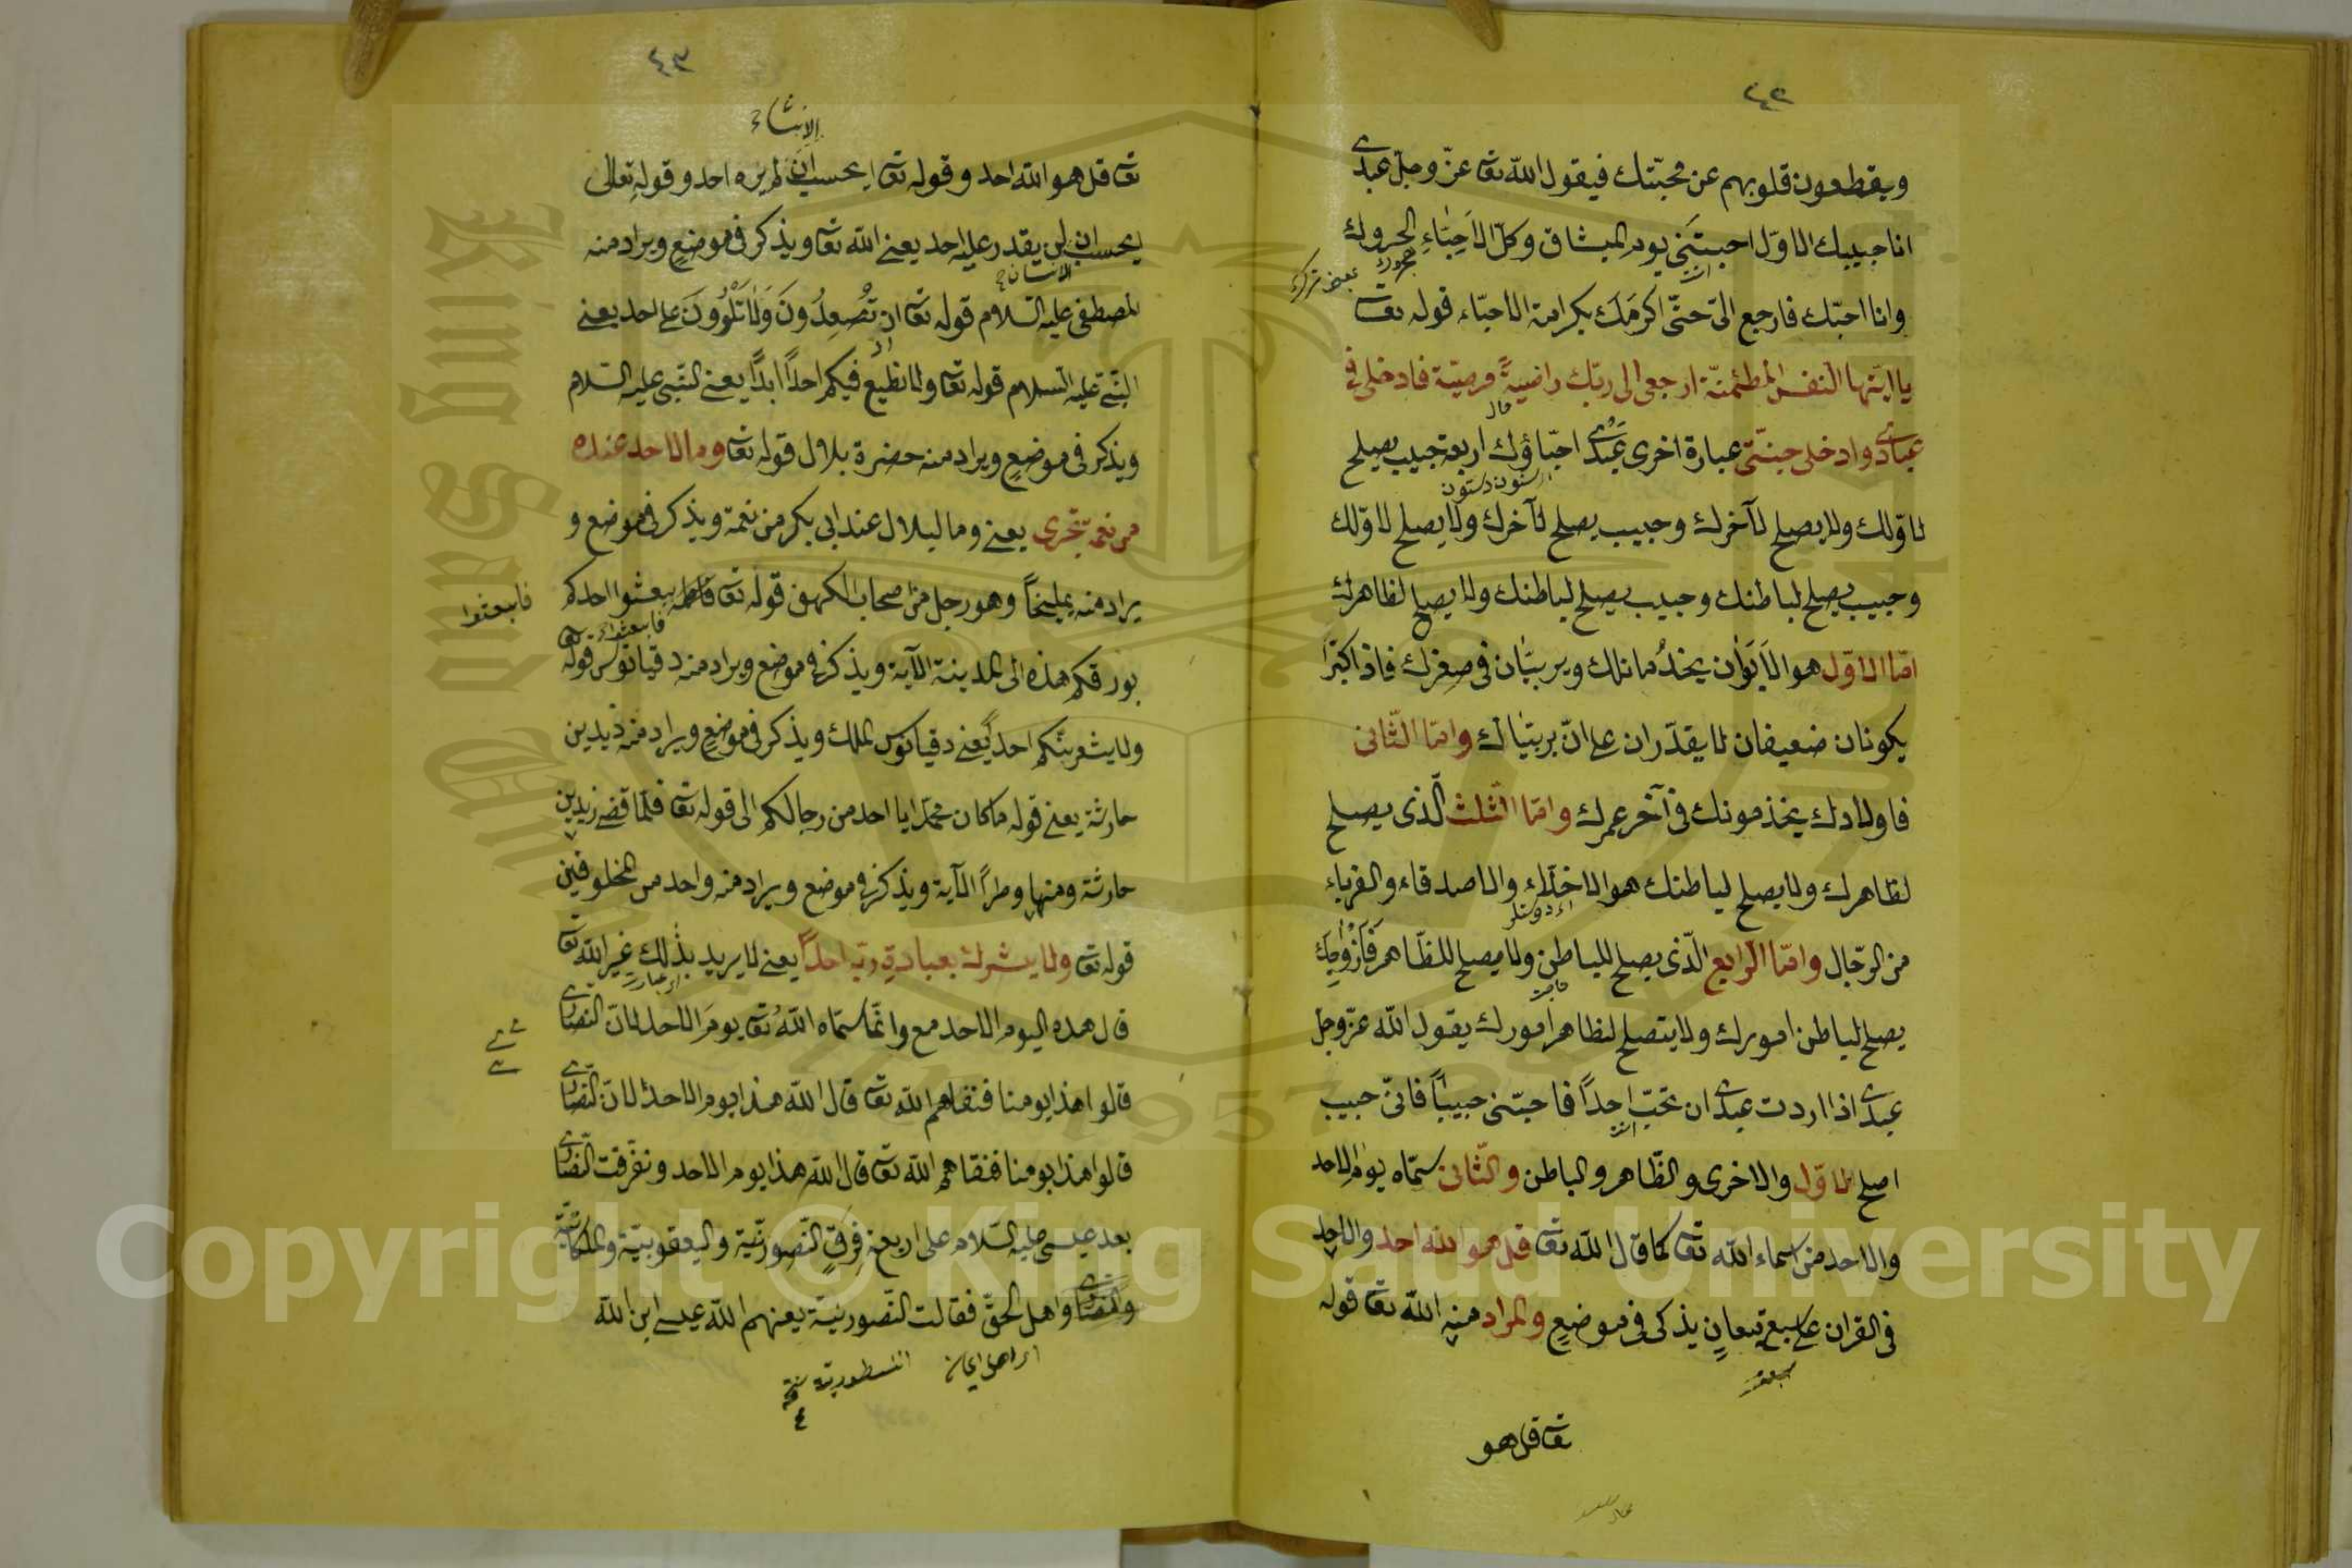 ٤٢
ويقطعون قلوبهم عن محبّتك فيقول اللّه تعا عزّ وجلّ عبدى
انا حبيبك الاوّل احببتنى يوم الميثاق وكلّ الاَحِبّاءِ
وانا احبّك فارجع الىّ حتّى اكرمَك بكرامة الاحبّاء قوله تعا
يا ايّتها النفس المطمئنّة ارجعى الى ربّك راضيةً مرضيّة فادخلى فى
عبادى وادخلى جنّتى عبارة اخرى عبدى احبّاؤك اربعة حبيب يصلح
لاوّلك ولا يصلح لآخرك وحبيب يصلح لآخرك ولا يصلح لاوّلك
وحبيب يصلح لباطنك وحبيب يصلح لباطنك ولا يصلح لظاهرك
امّا الاوّل هو الاَبَوَان يخدُمانك ويربيّان فى صغرك فاذا كبرَا
يكونان ضعيفان لا يقدّران على انّ يربيّاك وامّا الثّانى
فاولادك يخذمونك فى آخر عمرك وامّا الثّلث الّذى يصلح
لظاهرك ولا يصلح لباطنك هو الاخلّاء والاصدقاء والقرباء
من الرّجال وامّا الرّابع الّذى يصلح للباطن ولا يصلح للظّاهر فَاَزْوَاجِك
يصلح لباطن امورك ولا يتصلح لظاهر امورك يقول اللّه عزّ وجل
عبدى اذا اردت عبدى ان تحبّ احداً فاحبّنى حبيباً فانّى حبيب
اصلح لاوّل والاخرى والظّاهر والباطن والثّانى سمّاه يوم الاحد
والاحد من اسماء اللّه تعا كما قال اللّه تعا قل هو اللّه احد والاحد
فى القران على سبع معانٍ يذكر فى موضعٍ والمراد منه اللّه تعا قوله
تعا قل هو
٤٣
تعا قل هو اللّه احد وقوله تعا ايحسب ان لم يره احد وقوله تعالى
ايحسب ان لن يقدر عليه احد يعنى اللّه تعا ويذكر فى موضعٍ ويراد منه
الانسان
المصطفى عليه السّلام قوله تعا ان تُصْعِدُونَ وَلَا تَلْوُونَ على احد يعنى
النّبىّ عليه السّلام قوله تعا ولا نطيع فيكم احدًا ابدًا يعنى النّبى عليه السّلام
ويذكر فى موضعٍ ويراد منه حضرة بلال قوله تعا وما لاحد عنده
من نعمة تجزى يعنى وما لبلال عند ابى بكر من نعمة ويذكر فى موضع و
يراد منه يمليخاً وهو رجل من اصحاب الكهف قوله تعا يبعثوا احدكم
فابعثوا
بورقكم هذه الى المدينة الآية ويذكر فى موضع ويراد منه دقيانوس قوله تعا
ولا يشعرنّكم احداً يعنى دقيانوس الملك ويذكر فى موضعٍ ويراد منه زيد بن
حارثة يعنى قوله ما كان محمّد ابا احد من رجالكم الى قوله تعا فلمّا قضى زيد بن
حارثة ومنها وطراً الآية ويذكر فى موضع ويراد منه واحد من المخلوقين
قوله تعا ولا يشرك بعبادة ربّه احداً يعنى لا يريد بذلك غير اللّه تعا
قال هذه اليوم الاحد مع وانّما سمّاه اللّهُ تعا يومَ الاحد لانّ النصّارى
قالوا هذا يومنا فنفاهم اللّه تعا قال اللّه هذا يوم الاحد لانّ النّصارى
قالوا هذا يومنا فنفاهم اللّه تعا قال اللّه هذا يوم الاحد وتفرّقت النّصارى
بعد عيسى عليه السّلام على اربعة فِرَقٍ النّصورنيّة واليعقوبيّة والملكائيّة
والنصارى واهل الحقّ فقالت النّصورنيّة يعنهم اللّه عيسى ابن اللّه
النسطورية
Copyright © King Saud University
King Saud University
1957